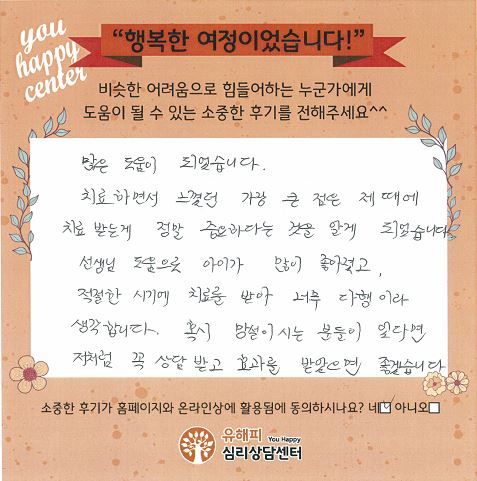 you
happy
center
“행복한 여정이었습니다!”
비슷한 어려움으로 힘들어하는 누군가에게
도움이 될 수 있는 소중한 후기를 전해주세요^^
많은 도움이 되었습니다.
치료하면서 느꼈던 가장 큰 점은 제때에
치료 받는게 정말 중요하다는 것을 알게 되었습니다.
선생님 도움으로 아이가 많이 좋아졌고,
적절한 시기에 치료를 받아 너무 다행이라
생각합니다. 혹시 망설이시는 분들이 있다면
저처럼 꼭 상담 받고 효과를 받았으면 좋겠습니다
소중한 후기가 홈페이지와 온라인상에 활용됨에 동의하시나요? 네☑ 아니오☐
유해피 You Happy
심리상담센터